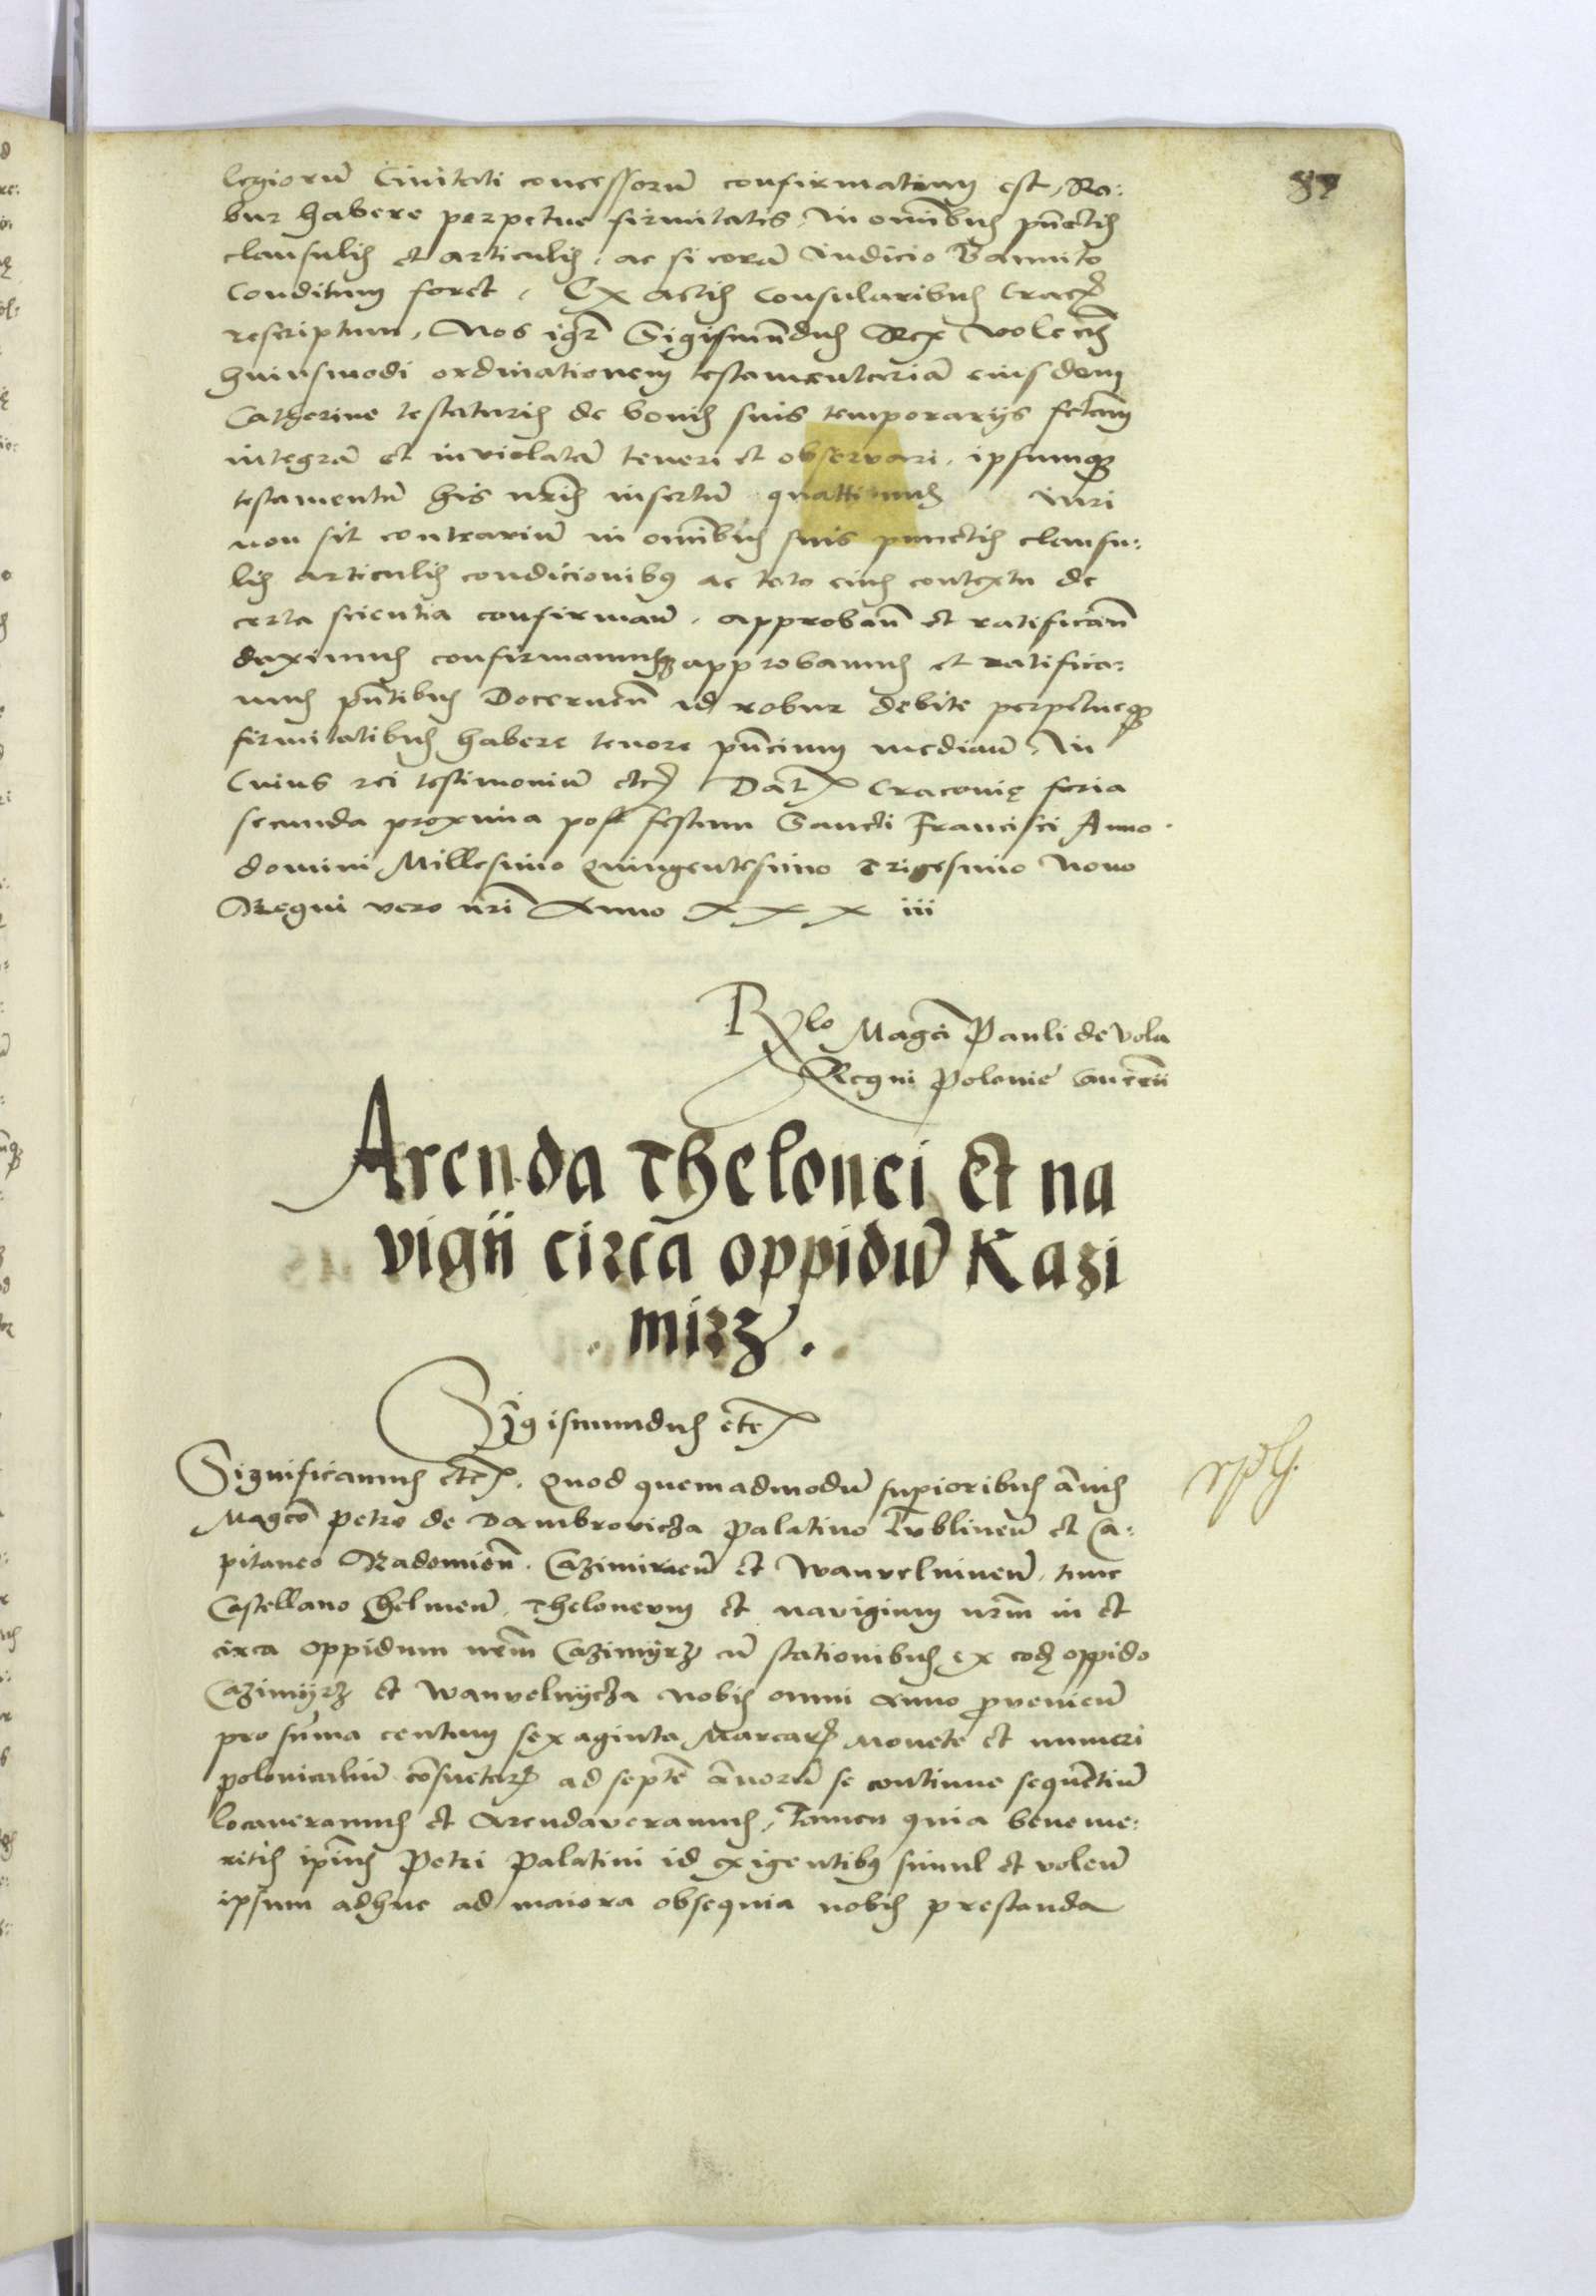 87
legiorũ Civitati concessorũ confirmatum est, Ro:
bur habere perpetue firmitatis, in omĩbus pũctis
clausulis et articulis, ac si corã iudicio Bannito
conditum foret. Ex actis Consularibus Crac̃
rescriptum, Nos igr̃ Sigismũdus Rex
huiusmodi ordinationem testamentariã eiusdem
Catherine testatricis de bonis suis temporarijs fctam
integrã et inviolatã teneri et observari. ipsumq
testamentũ his nr̃is insertũ quattinus iuri
non sit contrariũ in omĩbus suis punctis clausu:
lis articulis condicionibus ac toto eius contextu de
certa scientia confirmañ. approbañ et ratificañ
duximus confirmamusq approbamus et ratifica:
mus pñtibus Decerneñ id robur debite perpetueq
firmitatibus habere tenore pñcium mediañ. In
Cuius rei testimoniũ etc Dat Cracovię feria
secunda proxima post festum Sancti Francisci Anno
domini Millesimo Quingentesimo Trigesimo Nono
Regni vero nr̃i Anno XXX iii
Rlo Magci Pauli de Vola
Regni Polonie vicecñ
Arenda Thelonei et na
vigii circa oppidũ Kazi
mirz.
Sigismundus etc
Significamus etc. Quod quemadmodũ supioribus ãnis
Magco Petro de Dambrovicza Palatino Lublineñ et Ca:
pitaneo Radomieñ. Cazimirieñ et Wanvelnineñ. tunc
Castellano Chelmeñ, Theloneum et navigium nr̃m in et
circa oppidum nr̃m Cazimyrz cũ stationibus ex eod oppido
Cazimyrz et Wanvelnycza nobis omni Anno pvenieñ
pro sũma centum sexaginta Marcar Monete et numeri
polonicaliũ cõsuetar ad septẽ ãnorũ se continue sequẽtiũ
locaveramus et Arendaveramus, Tamen quia beneme:
ritis ipĩus Petri Palatini id exigentibus simul et voleñ
ipsum adhuc ad maiora obsequia nobis prestanda